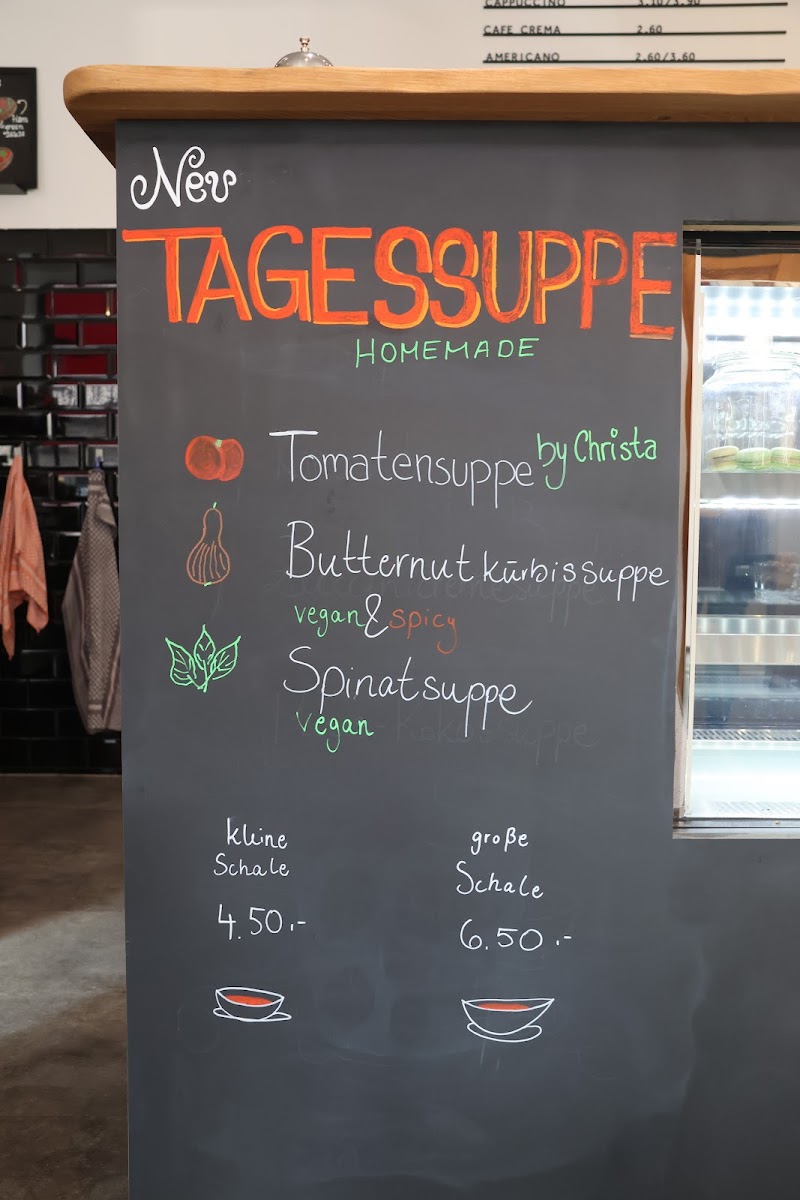 CAPPUCCINO 3.10/3.90
CAFE CREMA 2.60
AMERICANO 2.60/3.60
New
TAGESSUPPE
HOMEMADE
Tomatensuppe by Christa
Butternut kürbissuppe
vegan & spicy
Spinatsuppe
vegan
kleine große
Schale Schale
4.50.- 6.50.-